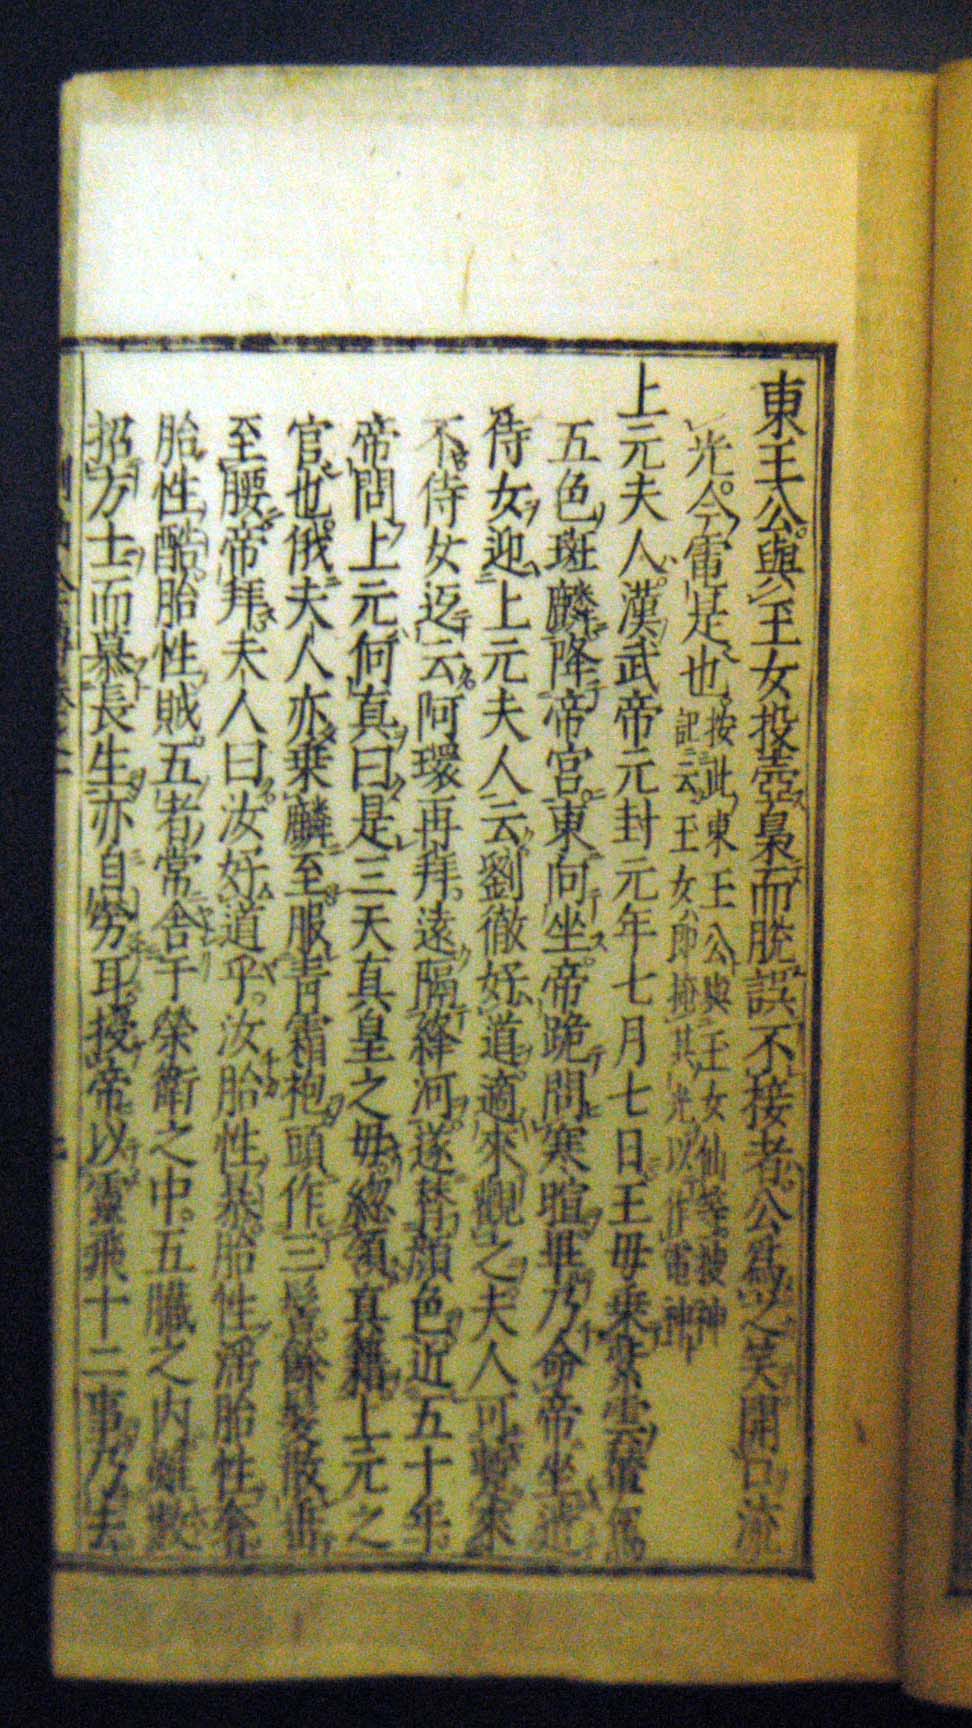 東王公與玉女投壺梟而脫誤不接者公為之笑開口流
光今電是也按此東王公與玉女仙等被神
記云玉女即掩其光以作電神
上元夫人漢武帝元封元年七月七日王母乗紫雲輦駕
五色斑麟降帝宮東向坐帝跪問寒暄畢乃命帝坐遣
侍女迎上元夫人云劉徹好道適來觀之夫人可暫來
不侍女返云阿環再拜遠隔絳河遂替顏色近五十年
帝問上元何真曰是三天真皇之母總領真籍上元之
官也俄夫人亦乗麟至服青霜袍頭作三髻餘髮散垂
至腰帝拜夫人曰汝好道乎汝胎性暴胎性淫胎性奢
胎性酷胎性賊五者常舍于榮衛之中五臟之内雖數
招方士而慕長生亦自勞耳授帝以靈飛十二事乃去